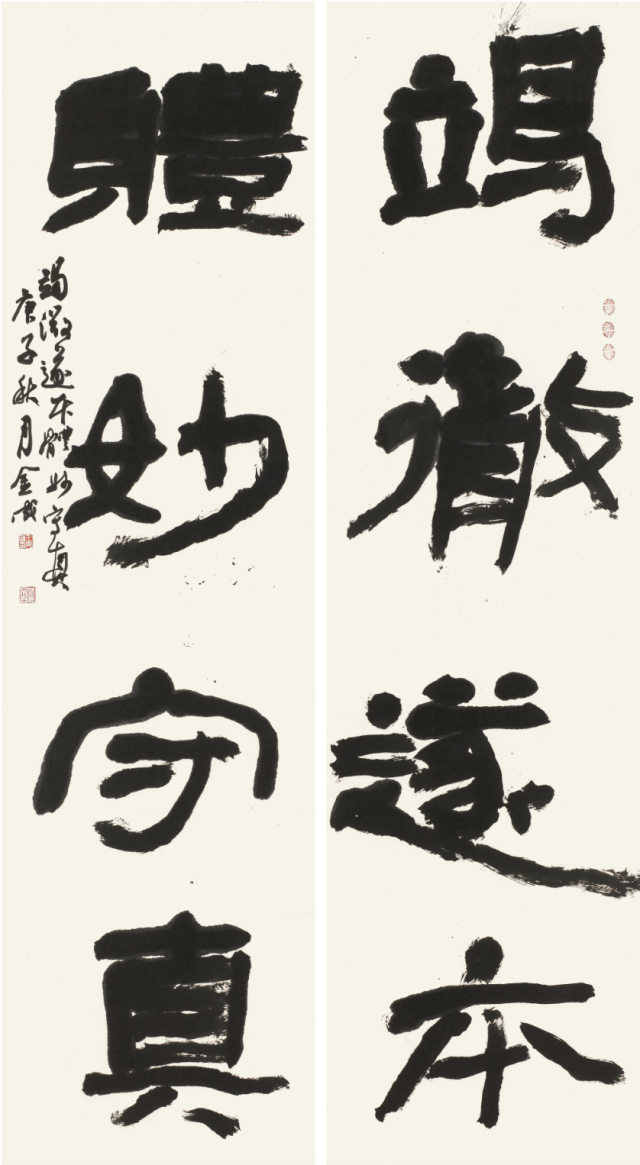 竭徹遂本
體妙守真
竭徹遂本體妙守真
庚子秋月金